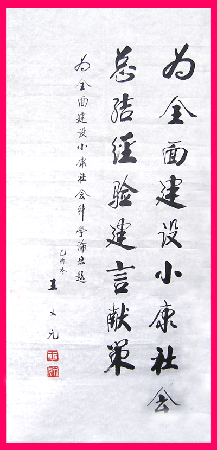 为全面建设小康社会
总结经验建言献策
为全面建设小康社会
乙酉冬
王文元